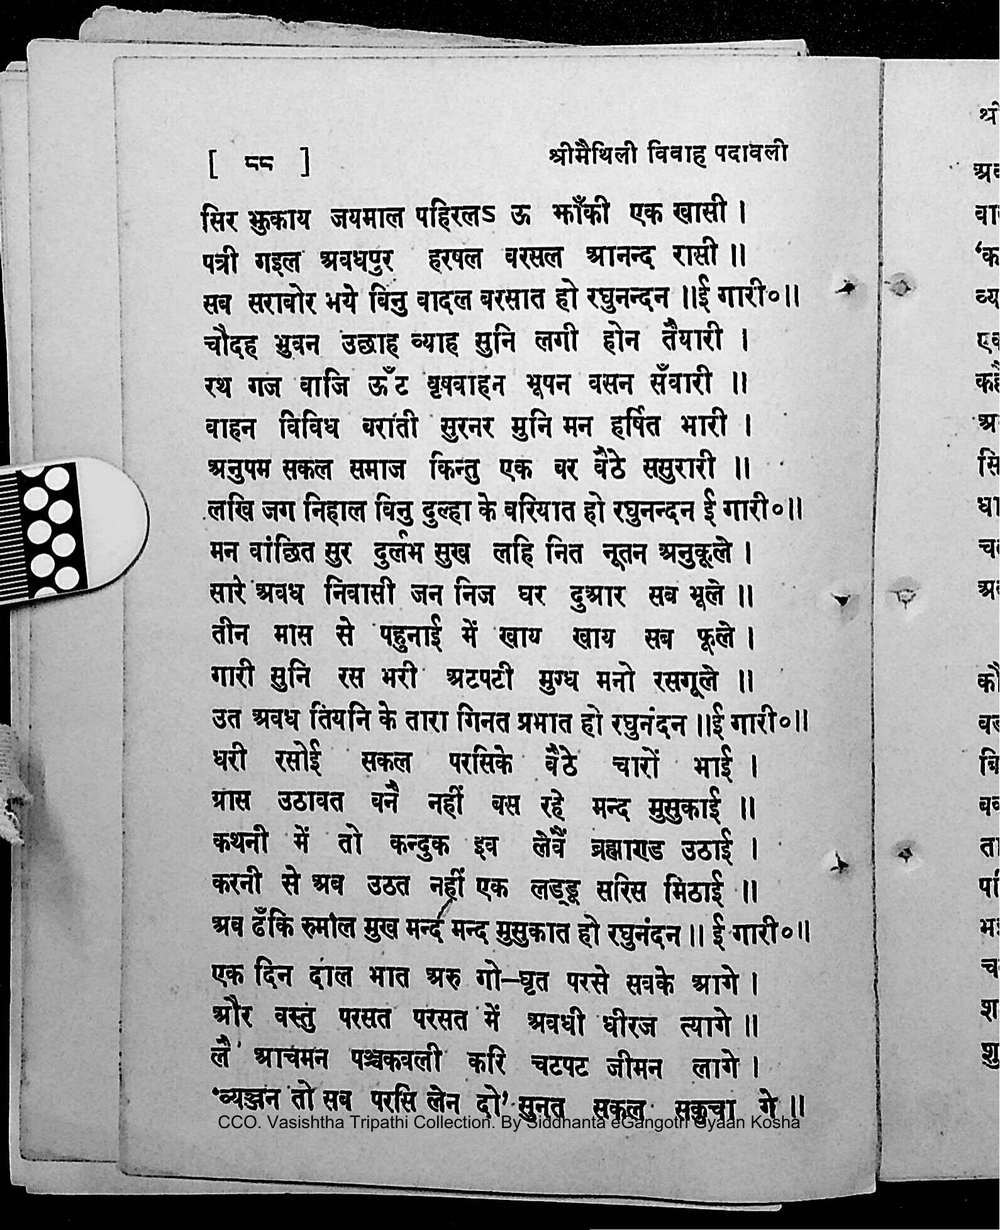 [ ८८ ] श्रीमैथिली विवाह पदावली
सिर झुकाय जयमाल पहिरलऽ ऊ झाँकी एक खासी ।
पत्री गइल अवधपुर हरषल वरसल आनन्द रासी ॥
सब सरावोर भये विनु वादल बरसात हो रघुनन्दन ॥ई गारी०॥
चौदह भुवन उछाह व्याह सुनि लगी होन तैयारी ।
रथ गज वाजि ऊँट वृषवाहन भूषन वसन सँवारी ॥
वाहन विविध बराती सुरनर मुनि मन हर्षित भारी ।
अनुपम सकल समाज किन्तु एक वर वैठे ससुरारी ॥
लखि जग निहाल विनु दुल्हा के बरियात हो रघुनन्दन ई गारी०॥
मन वांछित सुर दुर्लभ सुख लहि नित नूतन अनुकूले ।
सारे अवध निवासी जन निज घर दुआर सब भूले ॥
तीन मास से पहुनाई में खाय खाय सब फूले ।
गारी सुनि रस भरी अटपटी मुग्ध मनो रसगूले ॥
उत अवध तियनि के तारा गिनत प्रभात हो रघुनंदन ॥ई गारी०॥
धरी रसोई सकल परसिके वैठे चारों भाई ।
ग्रास उठावत वनै नहीं बस रहे मन्द मुसुकाई ॥
कथनी में तो कन्दुक इव लेवैं ब्रह्माण्ड उठाई ।
करनी से अब उठत नहीं एक लड्डू सरिस मिठाई ॥
अब ढँकि रुमाल मुख मन्द मन्द मुसुकात हो रघुनंदन ॥ ई गारी०॥
एक दिन दाल भात अरु गो-घृत परसे सबके आगे ।
और वस्तु परसत परसत में अवधी धीरज त्यागे ॥
लै आचमन पञ्चकवली करि चटपट जीमन लागे ।
'व्यञ्जन तो सब परसि लेन दो' सुनत सकल सकुचा गे ॥
CCO. Vasishtha Tripathi Collection. By Siddhanta eGangotri Gyaan Kosha